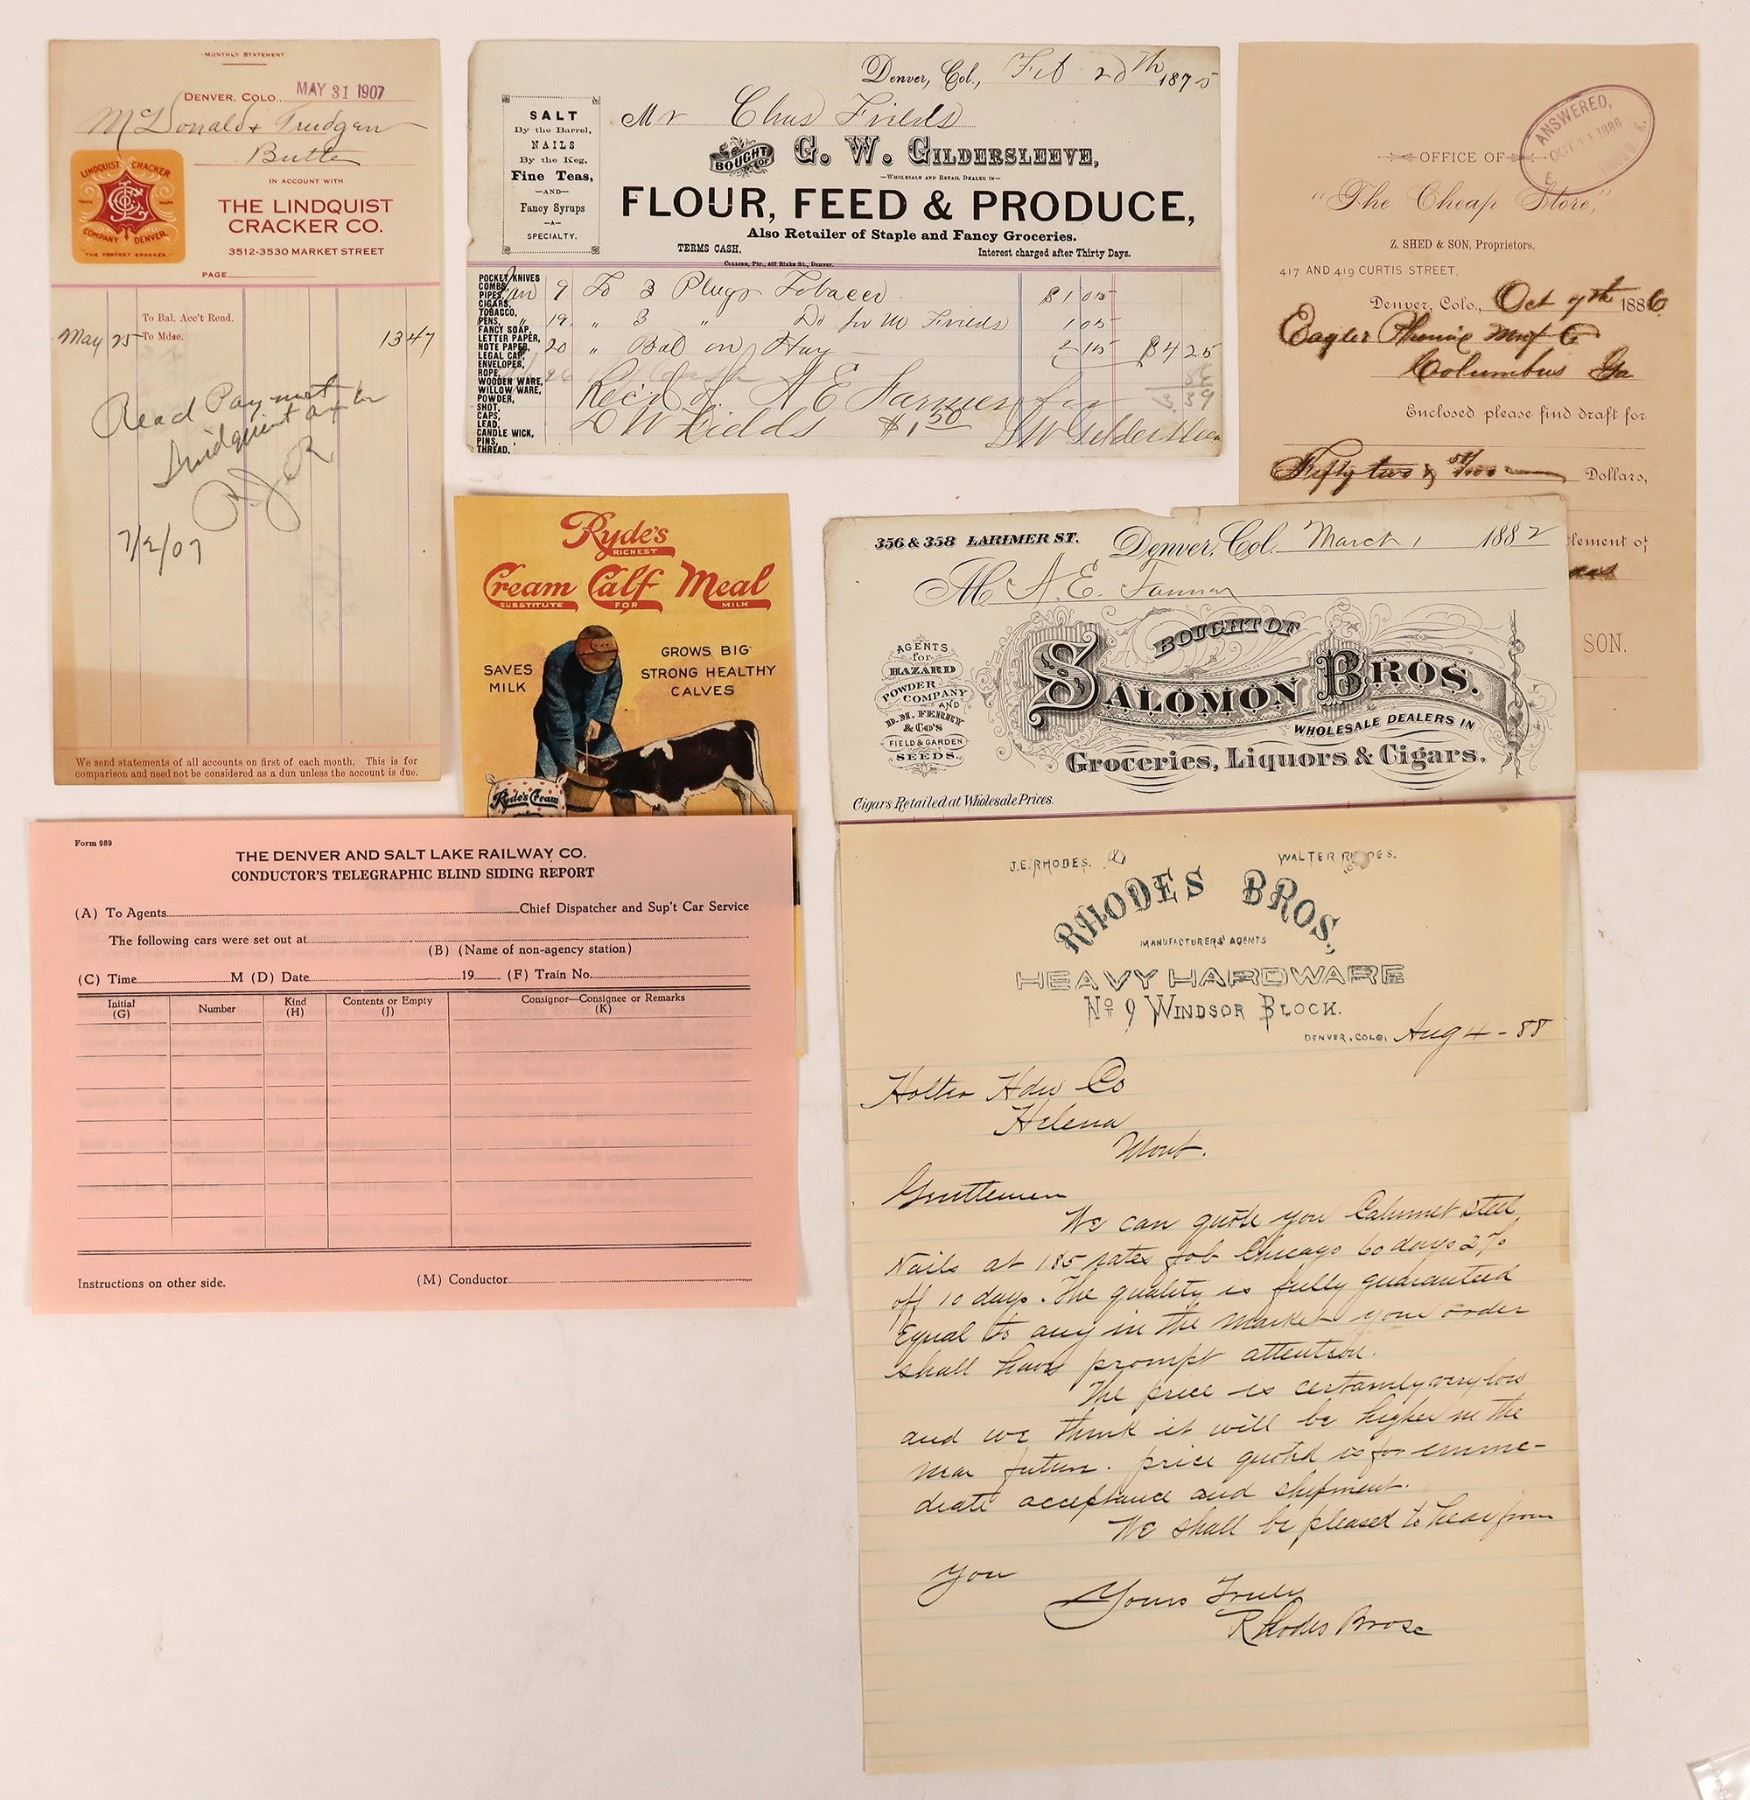 MONTHLY STATEMENT
DENVER, COLO., MAY 31 1907
McDonald & Trudgen
Butte
LINDQUIST CRACKER
TRADE MARK
COMPANY DENVER.
"THE PERFECT CRACKER"
IN ACCOUNT WITH
THE LINDQUIST
CRACKER CO.
3512-3530 MARKET STREET
PAGE
To Bal. Acc't Rend.
May 25 To Mdse. 1347
Read Payment
Lindquist
7/2/07
We send statements of all accounts on first of each month. This is for
comparison and need not be considered as a dun unless the account is due.
Denver, Col., Feb 20th 1875
Mr Chas Fields
BOUGHT OF G. W. GILDERSLEEVE,
WHOLESALE AND RETAIL DEALER IN
FLOUR, FEED & PRODUCE,
Also Retailer of Staple and Fancy Groceries.
TERMS CASH. Interest charged after Thirty Days.
Collier, Ptr., 407 Blake St., Denver.
SALT
By the Barrel,
NAILS
By the Keg,
Fine Teas,
—AND—
Fancy Syrups
—A—
SPECIALTY.
POCKET KNIVES
COMBS,
PIPES,
CIGARS,
TOBACCO,
PENS,
FANCY SOAP,
LETTER PAPER,
NOTE PAPER,
LEGAL CAP,
ENVELOPES,
ROPE,
WOODEN WARE,
WILLOW WARE,
POWDER,
SHOT,
CAPS,
LEAD,
CANDLE WICK,
PINS,
THREAD.
Jan 9 To 3 Plugs Tobacco $1 05
" 19 " 3 " Do for W Fields 1 05
" 20 " Bal on Hay 2 15 $4 25
3.39
Rec'd of A E Farmer for
D W Fields $1.50 G W Gildersleeve
ANSWERED,
OCT 11 1886
OFFICE OF
"The Cheap Store,"
Z. SHED & SON, Proprietors,
417 AND 419 CURTIS STREET,
Denver, Colo., Oct 7th 1886
Eagle & Phenix Mnf Co
Columbus Ga
Enclosed please find draft for
Fifty two & /100 Dollars,
tlement of
SON.
Ryde's
RICHEST
Cream Calf Meal
SUBSTITUTE FOR MILK
SAVES
MILK
GROWS BIG
STRONG HEALTHY
CALVES
Ryde's Cream
356 & 358 LARIMER ST. Denver, Col. March 1 1882
M A. E. Farmer
BOUGHT OF
SALOMON BROS.
WHOLESALE DEALERS IN
Groceries, Liquors & Cigars.
AGENTS
for
HAZARD
POWDER COMPANY
AND
D.M. FERRY
& CO'S
FIELD & GARDEN
SEEDS.
Cigars Retailed at Wholesale Prices.
Form 989
THE DENVER AND SALT LAKE RAILWAY CO.
CONDUCTOR'S TELEGRAPHIC BLIND SIDING REPORT
(A) To Agents Chief Dispatcher and Sup't Car Service
The following cars were set out at
(B) (Name of non-agency station)
(C) Time M (D) Date 19 (F) Train No.
Initial (G) Number Kind (H) Contents or Empty (J) Consignor—Consignee or Remarks (K)
Instructions on other side. (M) Conductor
J.E. RHODES. WALTER RHODES.
RHODES BROS.
MANUFACTURERS' AGENTS
HEAVY HARDWARE
No 9 WINDSOR BLOCK.
DENVER, COLO, Aug 4 - 88
Holter Hdw Co
Helena
Mont.
Gentlemen
We can quote you Calumet steel
Nails at 185 rates fob Chicago 60 days 2%
off 10 days. The quality is fully guaranteed
Equal to any in the market your order
shall have prompt attention.
The price is certainly very low
and we think it will be higher in the
near future. price quoted is for imme-
diate acceptance and shipment.
We shall be pleased to hear from
you
Yours Truly
Rhodes Bros